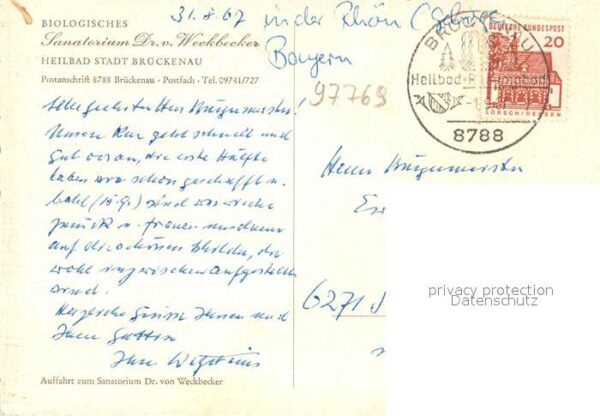 31.8.67 in der Rhön
Bayern
BIOLOGISCHES
Sanatorium Dr. v. Weckbecker
HEILBAD STADT BRÜCKENAU
Postanschrift 8788 Brückenau · Postfach · Tel. 09741/727
97769
BRÜCKENAU
Heilbad
8788
DEUTSCHE BUNDESPOST
20
LORSCH/HESSEN
Unsere Kur geht schnell und
gut voran, die erste Hälfte
haben wir schon geschafft u.
bald (15.9.) sind wir wieder
zurück u. freuen uns dann
auf die schönen Bilder, die
wohl inzwischen aufgestellt
sind.
Herzliche Grüsse Ihnen und
Ihrer Gattin
Ihre
Herrn Bürgermeister
6271
privacy protection
Datenschutz
Auffahrt zum Sanatorium Dr. von Weckbecker